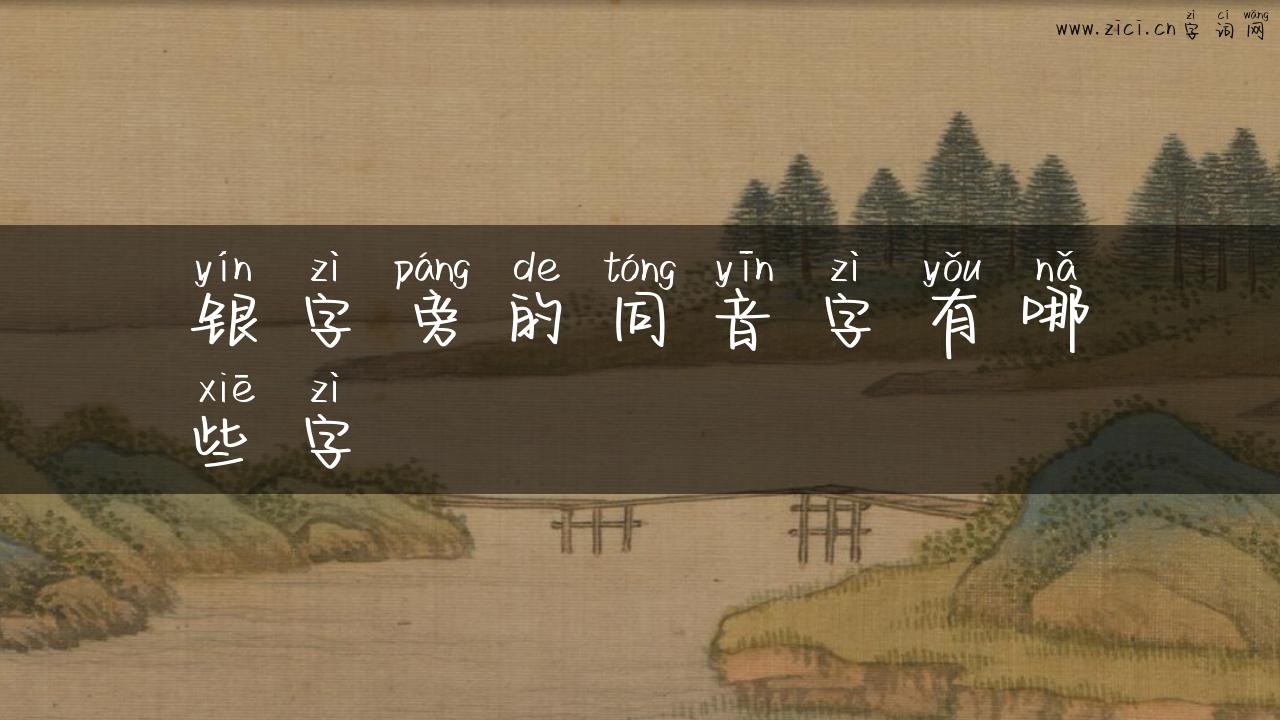 zì cí wǎng
www.zici.cn字词网
yín zì páng de tóng yīn zì yǒu nǎ
银字旁的同音字有哪
xiē zì
些字